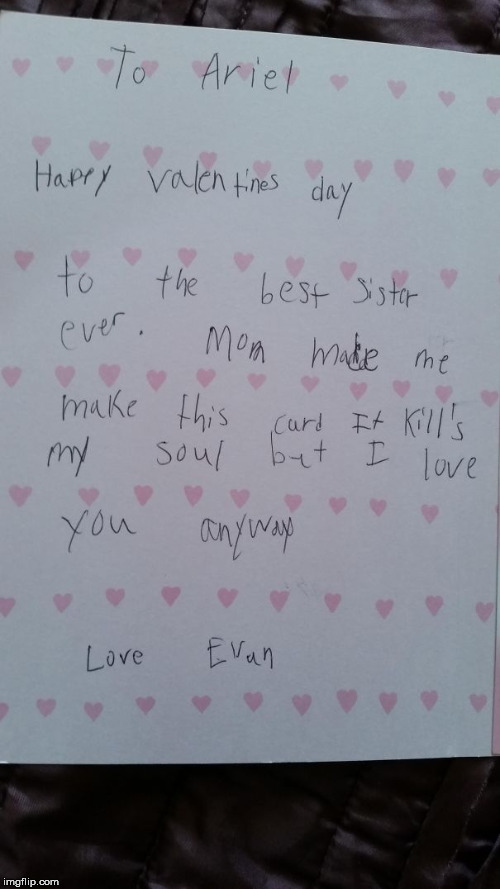 To Ariel
Happy valentines day
to the best Sister
ever. Mom made me
make this card It Kill's
my soul but I love
you anyway
Love Evan
imgflip.com